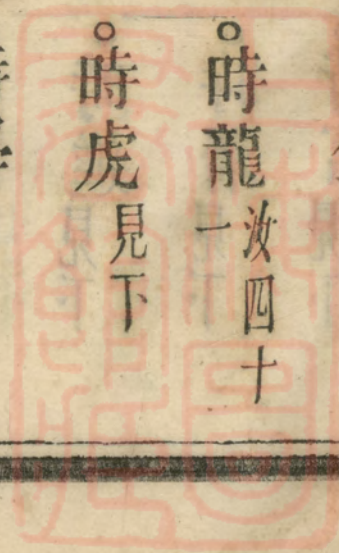 ○時龍汝四十一
○時虎見下